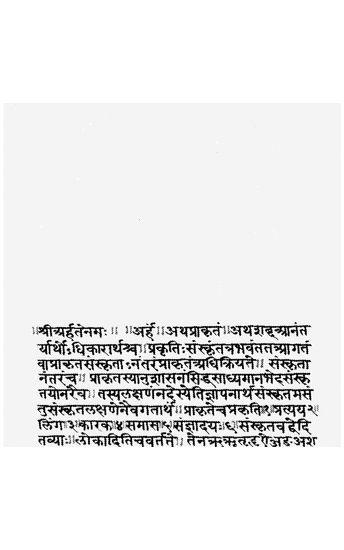 ॥श्रीअर्हतेनमः॥ ॥अर्हं॥अथप्राकृतं॥अथशब्दआनंत
र्यार्थोऽधिकारार्थश्च॥प्रकृतिःसंस्कृतंतत्रभवंततआगतं
वाप्राकृतंसंस्कृताःनंतरंप्राकृतंअधिक्रियते॥संस्कृता
नंतरंच॥प्राकृतस्यानुशासनंसिद्धसाध्यमानभेदसंस्कृ
तयोनेरेव॥तस्यलक्षणंनदेस्येतिज्ञापनार्थंसंस्कृतमसं
तुसंस्कृतलक्षणेनैवगतार्थं॥प्राकृतेचप्रकृति१प्रत्यय२
लिंग३कारक४समास५संज्ञादयः६संस्कृतवद्वेदि
तव्याः॥लोकादितिचवर्तते॥तेनऋॠऌॡऐऔङञश